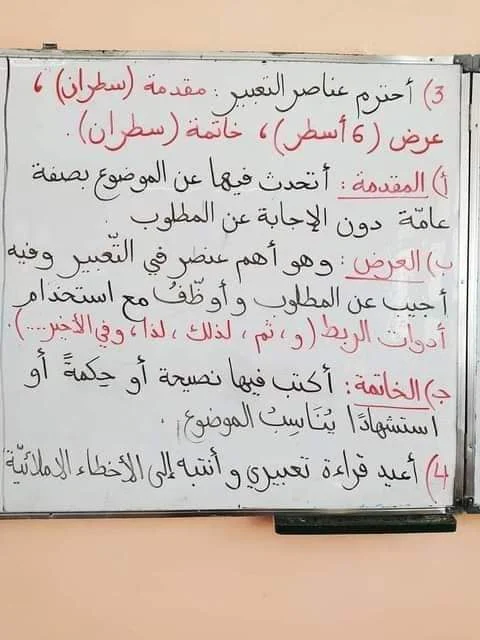 3) أحترم عناصر التعبير: مقدمة (سطران)،
عرض (6 أسطر)، خاتمة (سطران).
أ) المقدمة: أتحدث فيها عن الموضوع بصفة
عامّة دون الإجابة عن المطلوب.
ب) العرض: وهو أهم عنصر في التّعبير وفيه
أجيب عن المطلوب وأوظّفُ مع استخدام
أدوات الربط (و، ثم، لذلك، لذا، وفي الأخير...).
ج) الخاتمة: أكتب فيها نصيحة أو حِكمةً أو
استشهادًا يُنَاسِبُ الموضوع.
4) أعيد قراءة تعبيري وأنتبه إلى الأخطاء الاملائيّة